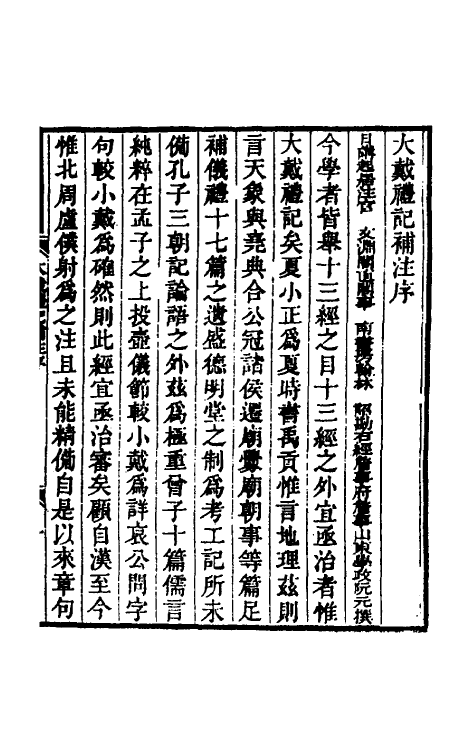 大戴禮記補注序
日講起居注官 文淵閣直閣事 南書房翰林 詹事府詹事山東學政阮元撰
今學者皆舉十三經之目十三經之外宜亟治者惟
大戴禮記矣夏小正為夏時書禹貢惟言地理茲則
言天象與堯典合公冠諸侯遷廟釁廟朝事等篇足
補儀禮十七篇之遺盛德明堂之制為考工記所未
備孔子三朝記論語之外茲為極重曾子十篇儒言
純粹在孟子之上投壺儀節較小戴為詳哀公問字
句較小戴為確然則此經宜亟治審矣顧自漢至今
惟北周盧僕射為之注且未能精備自是以來章句